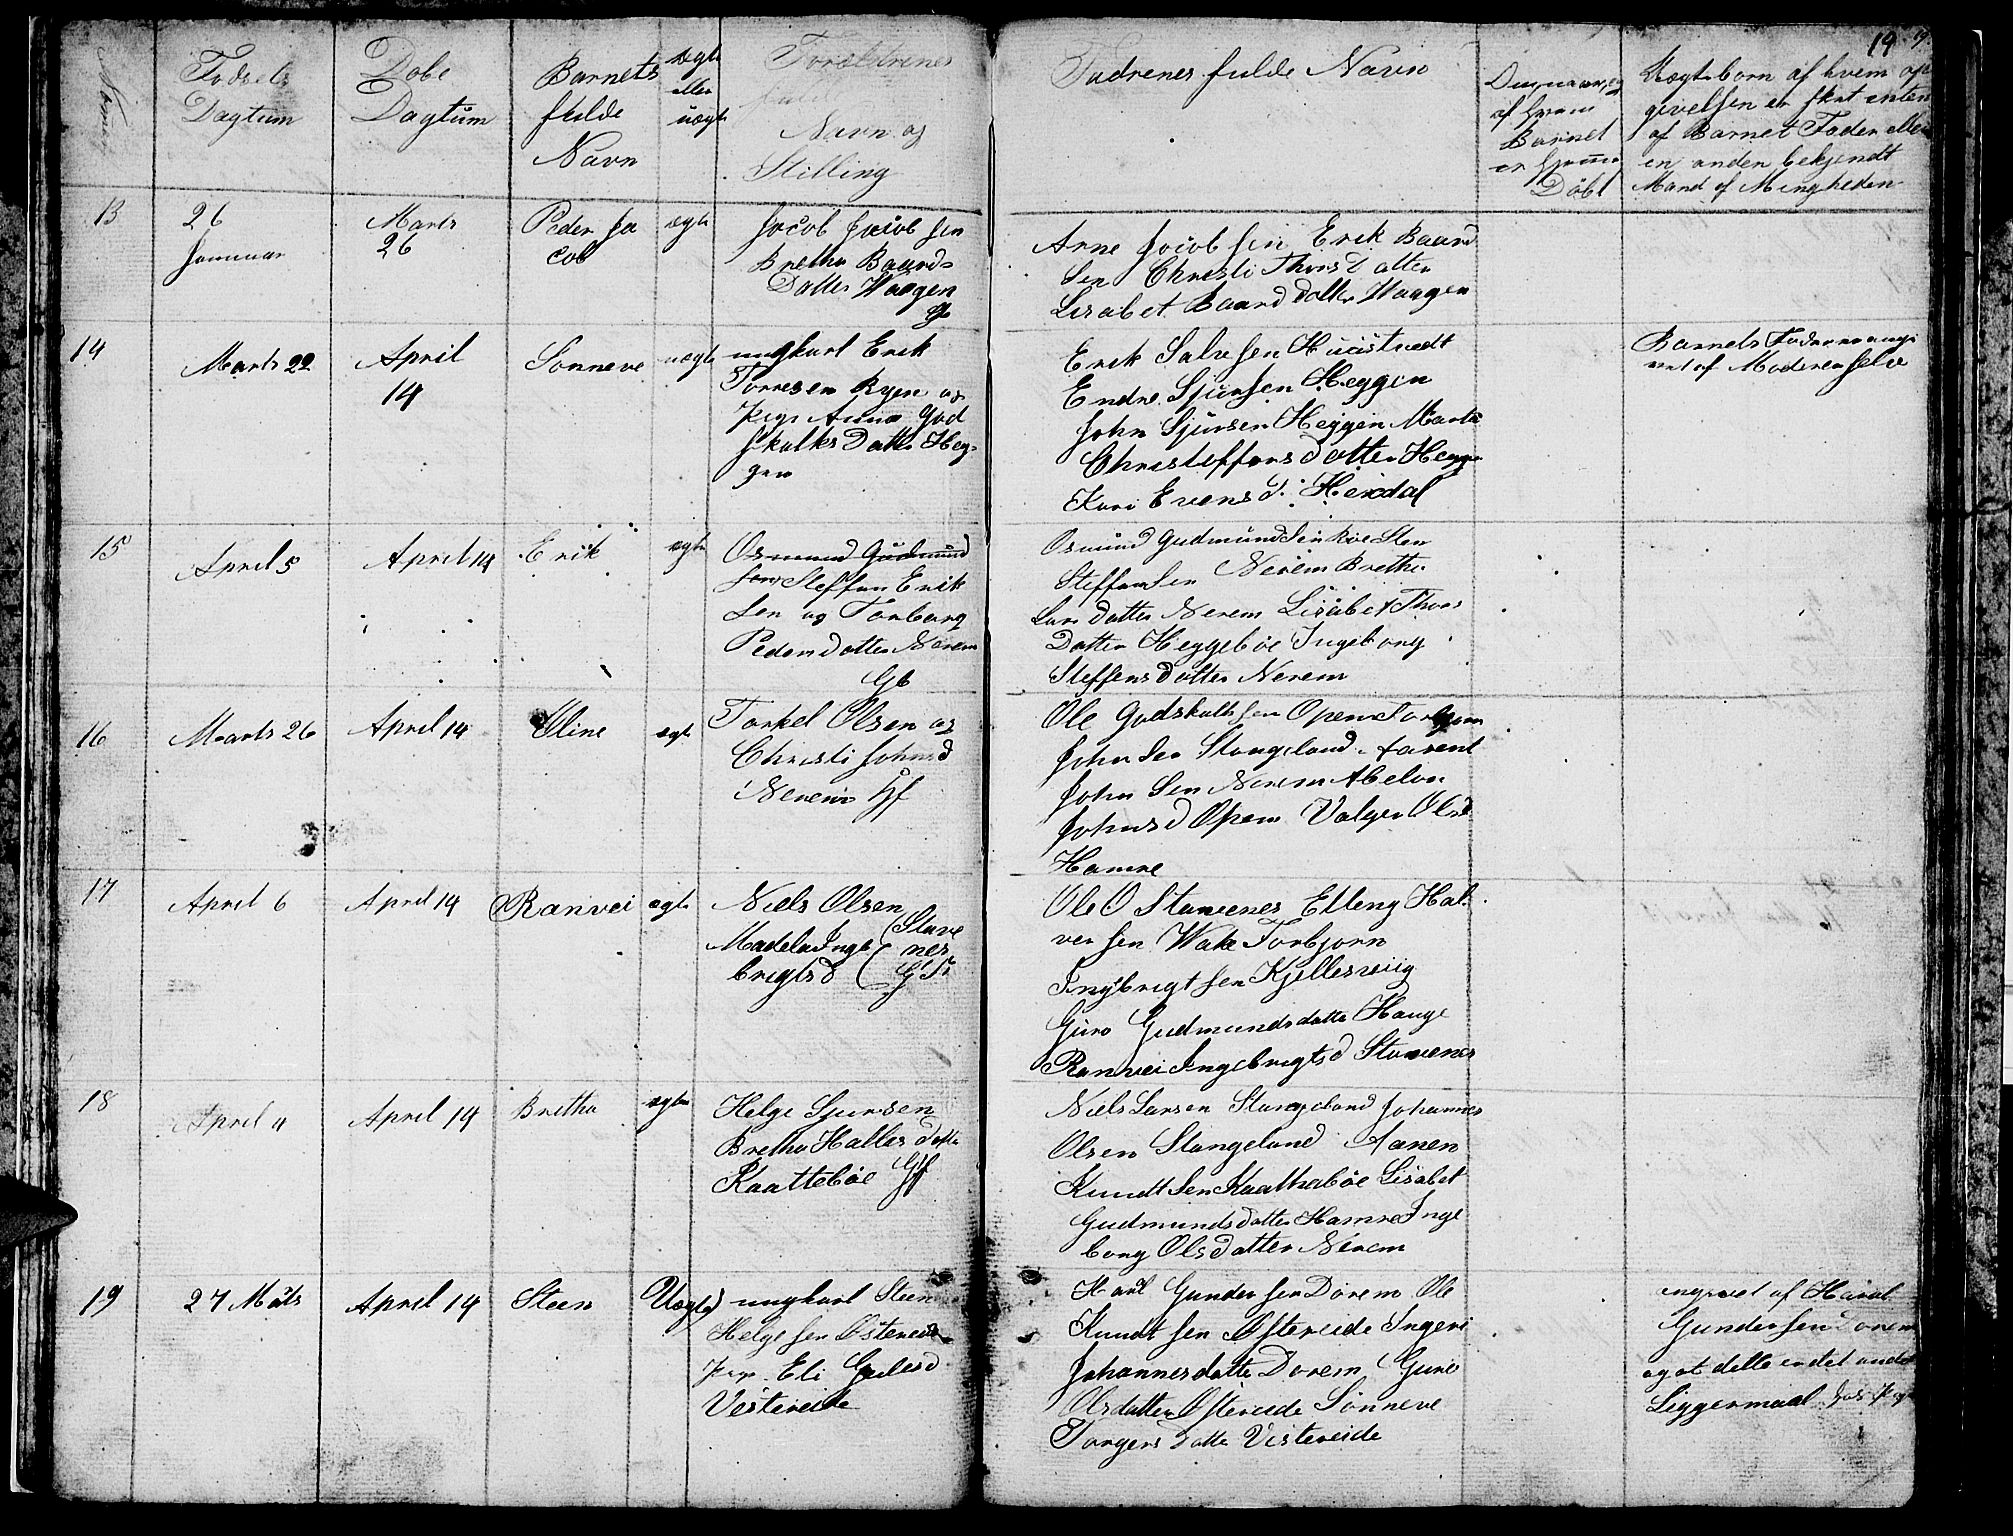 19
Fødsels Dagtum
Døbe Dagtum
Barnets fulde Navn
ægte eller uægte
Forældrenes
Navn og
Stilling
Fadrenes fulde Navn
af hvem
Barnet
er
Døbt
Uægtebørn af hvem op
givelsen er sket enten
af Barnet Fader eller
en anden bekjendt
Mand af Menigheden
13
26
Januar
Marts
26
Peder Ja
cob
ægte
Jacob Jacob sen
Bretha Baards
Datter Waagen
Arne Jacob sen Erik Baard
sen Christi Thors Datter
Lisabet Baard datter Waagen
14
Marts 22
April
14
Sønneve
uægte
ungkarl Erik
Torresen Ryen og
Pige Anna God
skalks Datter Heg-
gen
Erik Salve sen
Endre Sjursen Heggen
John Sjursen Heggen Marta
Christoffers datter Hegge
Kari Evens d. Heirdal
Barnets Fader
af Moderen selv
15
April 5
April 14
Erik
ægte
Osmund Gudmund
sen Steffen Erik
sen og Torbørg
Peders datter Nerem
Gb
Osmund Gudmundsen Sten
Steffensen Nerem Bretha
Lars datter Nerem Lisabet Thors
Datter Heggebøe Ingeborg
Steffens datter Nerem
16
Marts 26
April 14
Oline
ægte
Torkel Olsen og
Christi Johnsd
Nerem Hf
Ole Godskalksen Opem Torbjørn
John sen Stangeland Aarent
John sen Nerem Abelon
Johns d Opem Valger Olsd
Hamre
17
April 6
April 14
Ranvei
ægte
Niels Olsen
Madela Inge (Stave
brigts d ( nes
Ole O Stavenes Elleng Hal
ver sen Wake Torbjørn
Ingbrigt sen Kjellesviig
Guro Gudmunds datter Hauge
Ranvei Ingebrigts d Stavenes
18
April 4
April 14
Bretha
ægte
Helge Sjursen
Bretha Halles datter
Kaattebøe Hf
Niels Larsen Stangeland Johannes
Olsen Stangeland Aanen
Knudt sen Kaattabøe Lisabet
Gudmunds datter Hamre Inge
borg Ols datter Nerem
19
27 Mats
April 14
Steen
Uægte
ungkarl Steen
Helge sen Østereide
Pige Eli
Vestereide
Haral Gunder sen Dorem Ole
Knudt sen Østereide Ingeri
Johannes datter Dorem Guro
Olsdatter Østereide Sønneve
Torgers datter Vestereide
angivet af Haral
Gundersen Dorem
og at dette er det andet
Leggermaal hos Pige